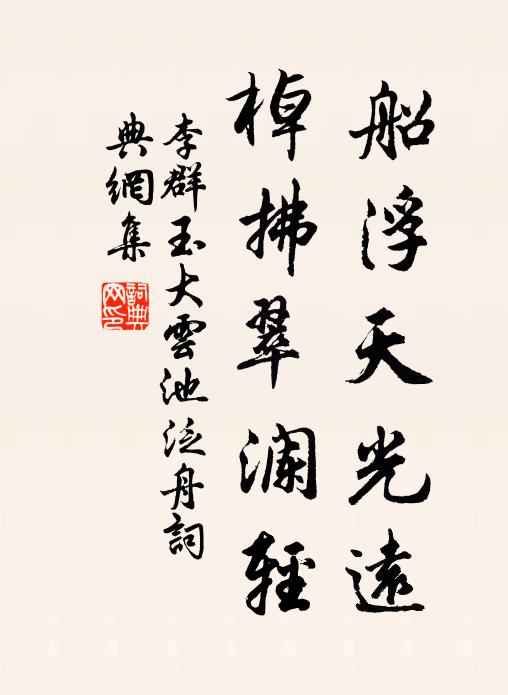 船浮天光遠
棹拂翠瀾輕
李群玉大雲池泛舟詞
典網集
詞典網印